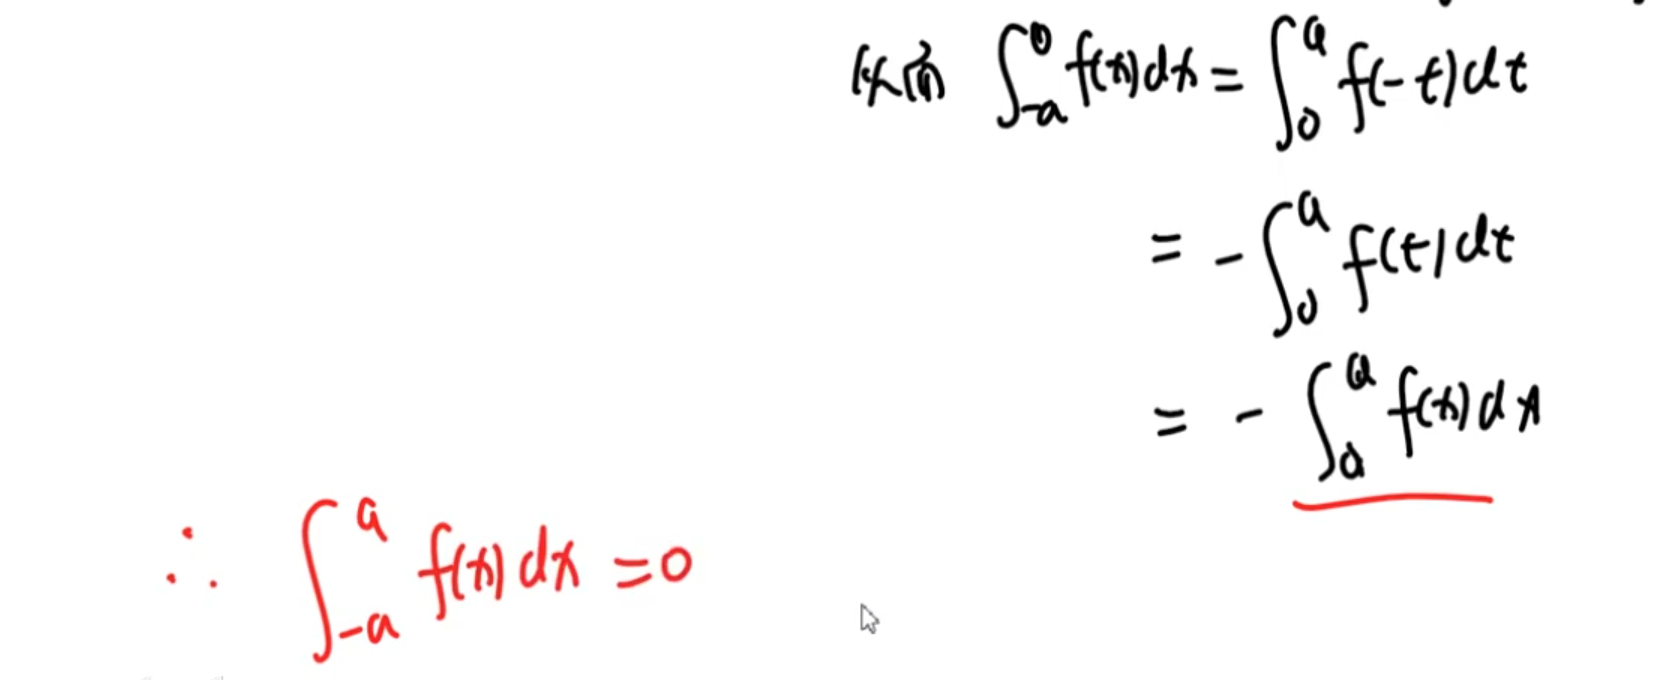 ∫_{-a}^{0} f(x)dx = ∫_{0}^{a} f(-t)dt
= -∫_{0}^{a} f(t)dt
= -∫_{0}^{a} f(x)dx
∴ ∫_{-a}^{a} f(x)dx = 0